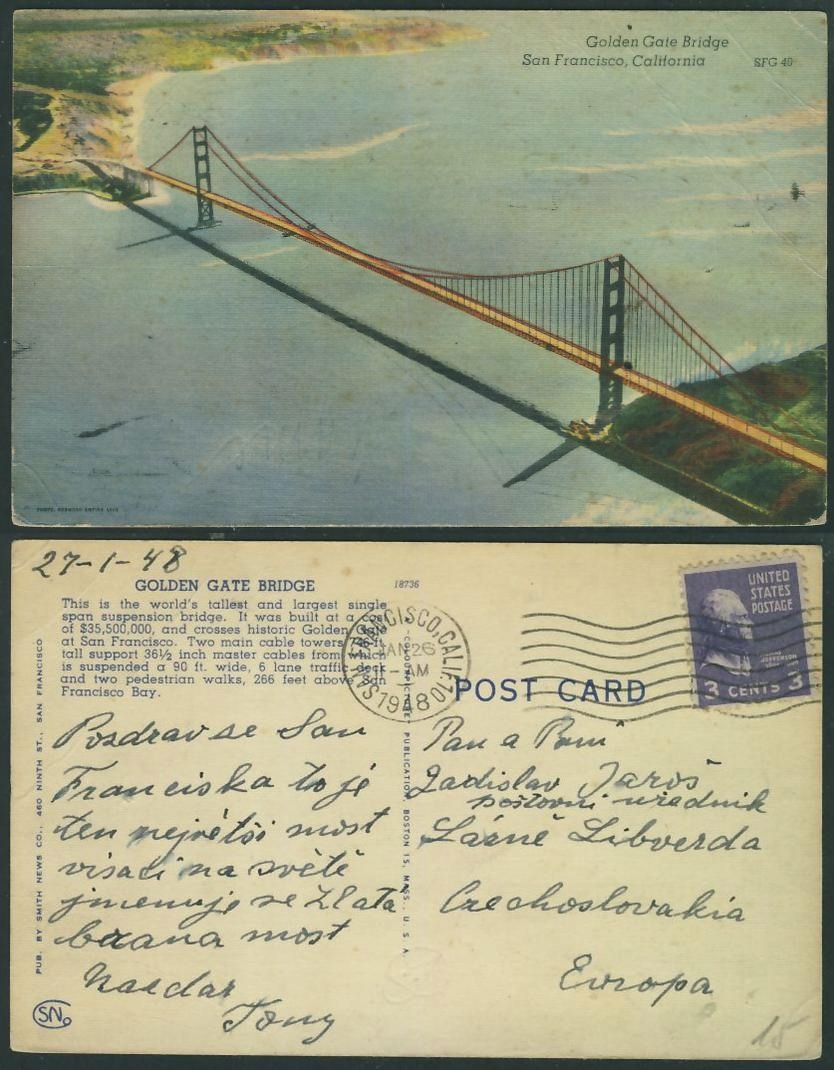 Golden Gate Bridge
San Francisco, California
SFG 40
27-1-48
GOLDEN GATE BRIDGE
18736
This is the world's tallest and largest single
span suspension bridge. It was built at a
of $35,500,000, and crosses historic Golden
at San Francisco. Two main cable towers
tall support 36½ inch master cables from which
is suspended a 90 ft. wide, 6 lane traffic deck
and two pedestrian walks, 266 feet above San
Francisco Bay.
SAN FRANCISCO, CALIF.
JAN 26
AM
1948
UNITED
STATES
POSTAGE
JEFFERSON
3 CENTS 3
POST CARD
Pozdrav se San
Franciska to je
ten největši most
visaci na světě
jmenuje se Zlata
brana most
Nazdar
Tony
Pan a Paní
Ladislav Jaroš
poštovni uradnik
Lázně Libverda
Czechoslovakia
Evropa
PUB. BY SMITH NEWS CO., 460 NINTH ST., SAN FRANCISCO
PUBLICATION, BOSTON 15, MASS., U. S. A.
SN
15